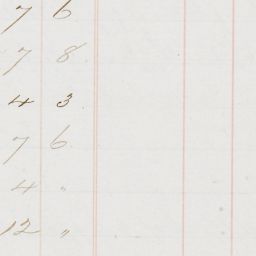 7 6
7 8
4 3
7 6
4 "
12 "